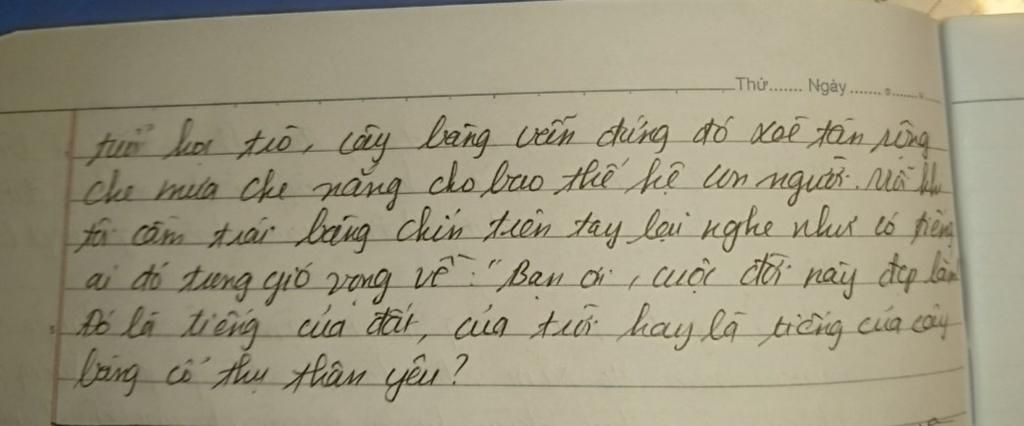 Thứ....... Ngày..............
tuổi học trò, cây bàng vẫn đứng đó xoè tán rộng
che mưa che nắng cho bao thế hệ con người. Mỗi khi
tôi cầm trái bàng chín trên tay lại nghe như có tiếng
ai đó trong gió vọng về: "Bạn ơi, cuộc đời này đẹp lắm
Đó là tiếng của đất, của trời hay là tiếng của cây
bàng cổ thụ thân yêu?